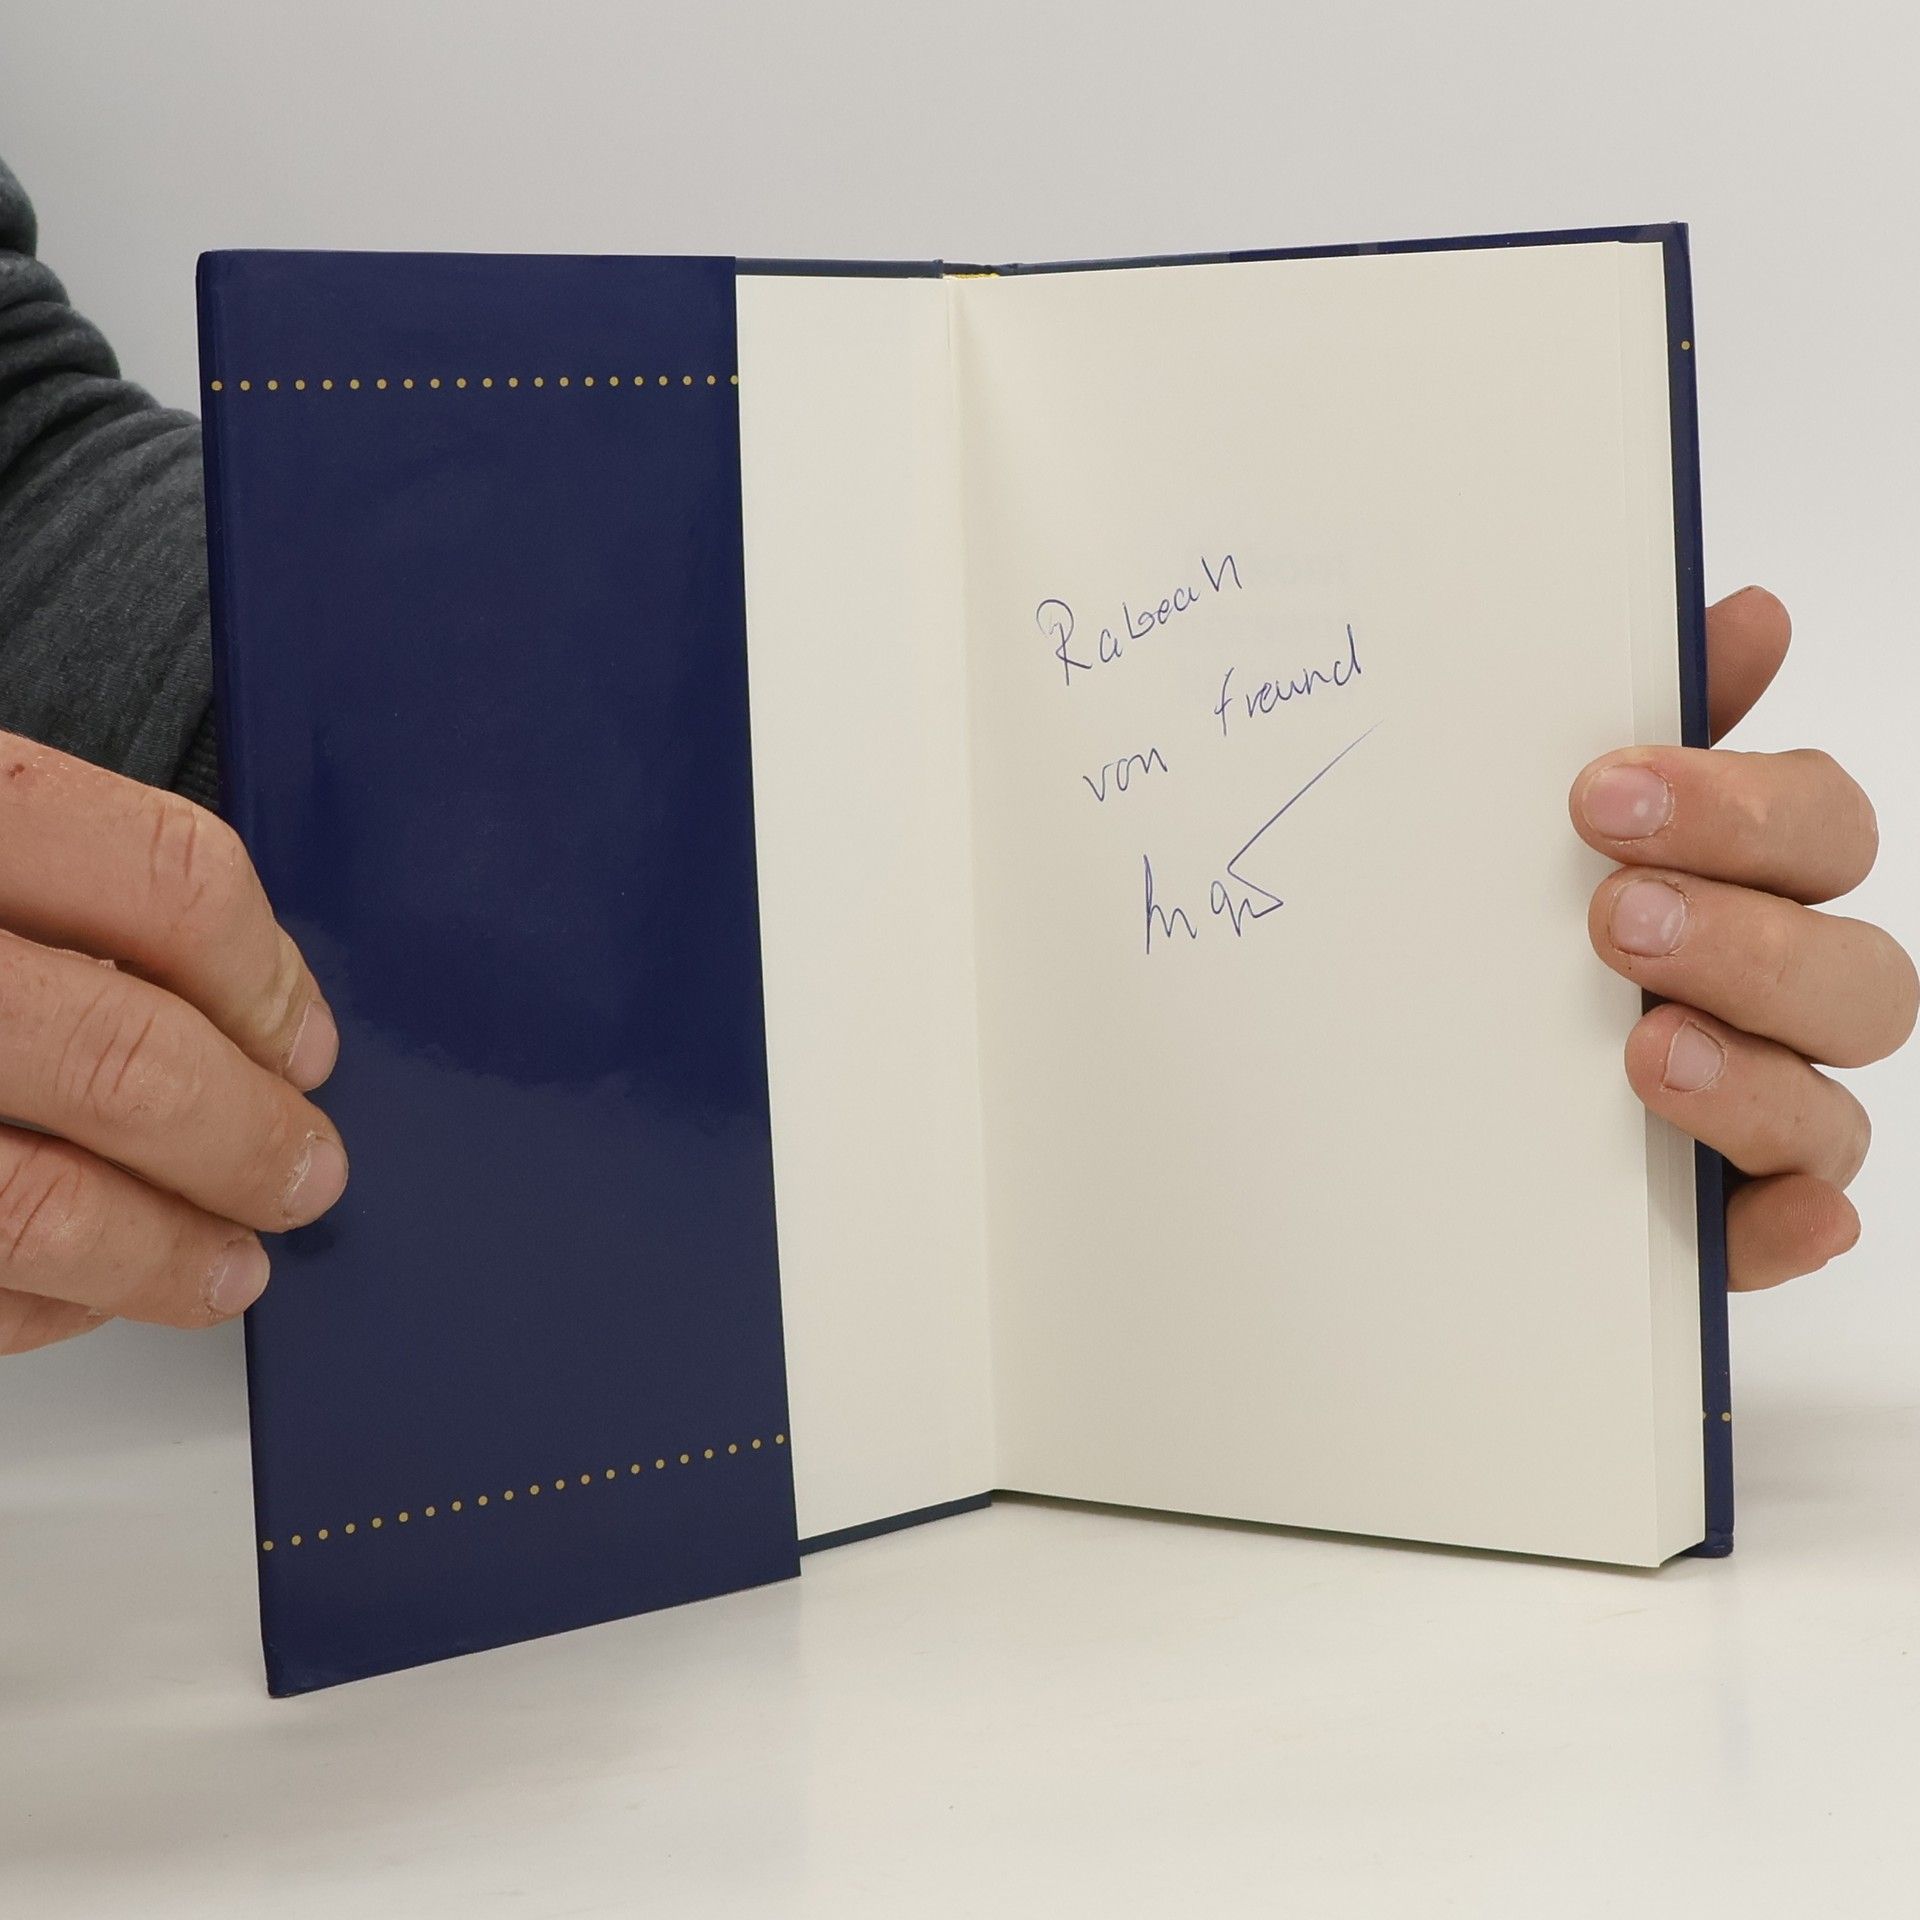 Rabeah
von Freund